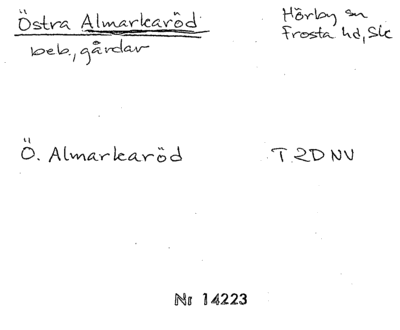 Östra Almarkaröd
beb., gårdar
Hörby sn
Frosta hd, Sk
Ö. Almarkaröd
T. 2D NV
Nr 14223